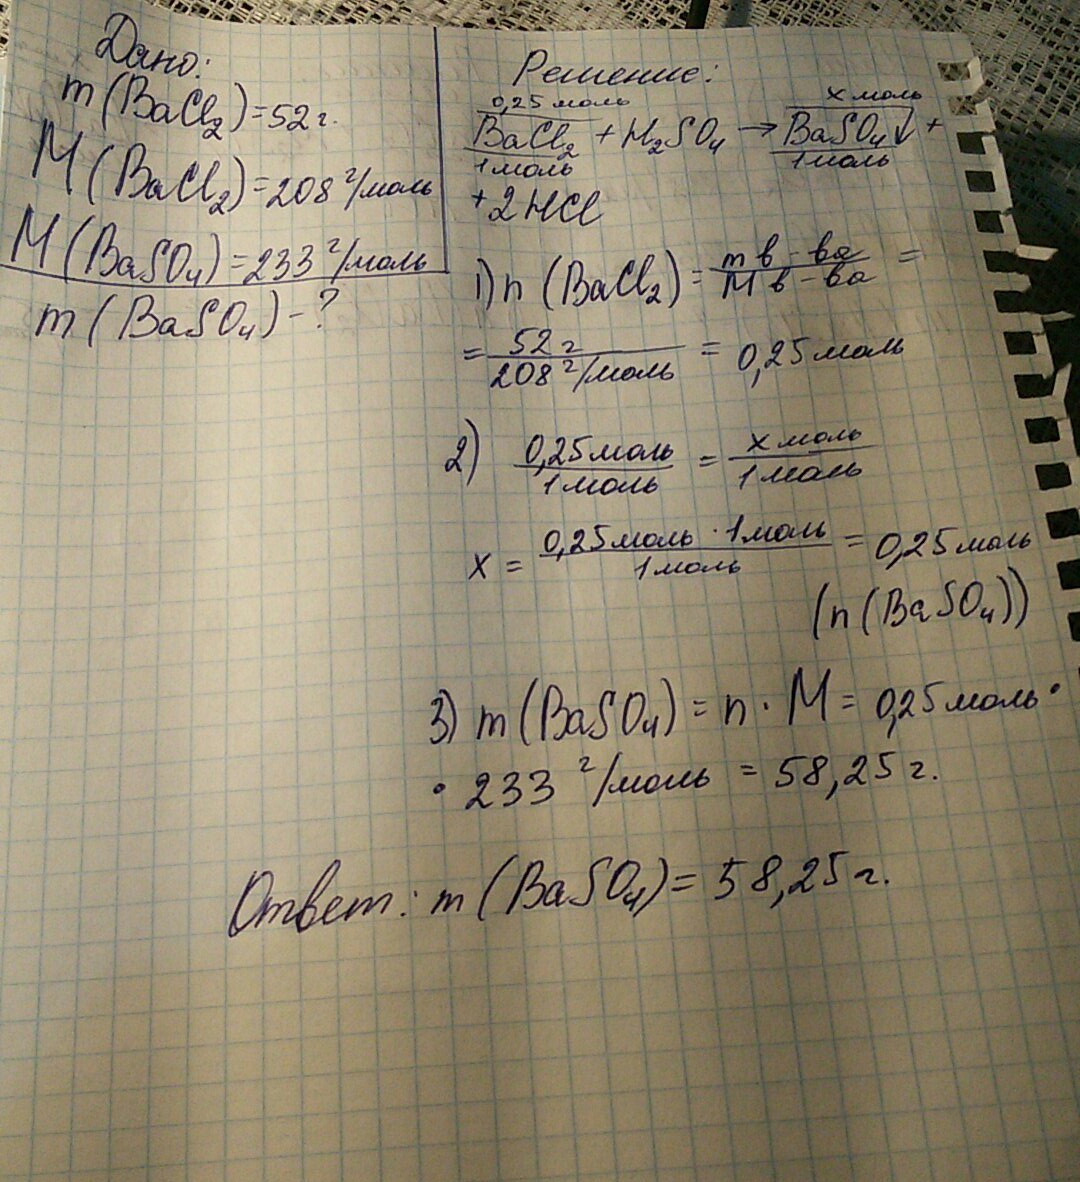 Дано:
m(BaCl₂)=52г.
M(BaCl₂)=208 г/моль
M(BaSO₄)=233 г/моль
m(BaSO₄)-?
Решение:
0,25 моль x моль
BaCl₂ + H₂SO₄ → BaSO₄↓ +
1моль 1моль
+2HCl
1) n(BaCl₂) = m в-ва / M в-ва =
= 52 г / 208 г/моль = 0,25 моль
2) 0,25 моль / 1 моль = x моль / 1 моль
x = 0,25 моль · 1 моль / 1 моль = 0,25 моль
(n(BaSO₄))
3) m(BaSO₄) = n · M = 0,25 моль ·
· 233 г/моль = 58,25 г.
Ответ: m(BaSO₄) = 58,25 г.